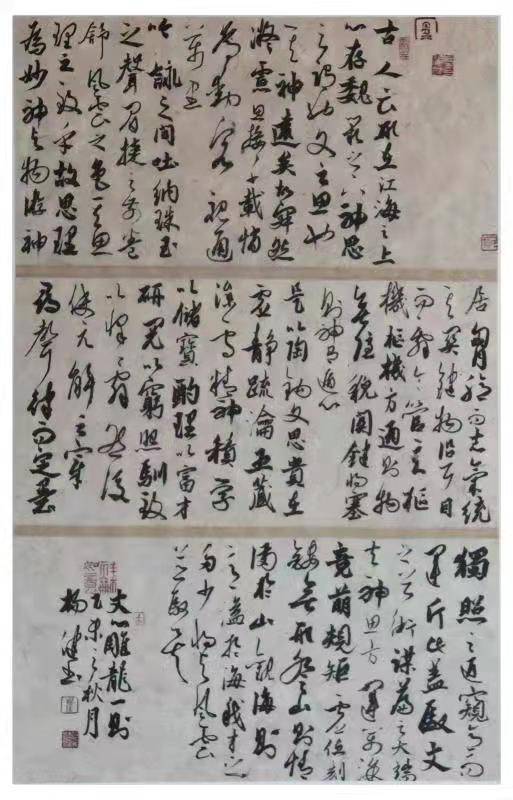 古人云形在江海之上
心存魏闕之下神思
之謂也文之思也
其神遠矣故寂然
凝慮思接千載悄
焉動容視通
萬里
吟詠之間吐納珠玉
之聲眉睫之前卷
舒風雲之色其思
理之致乎故思理
為妙神與物游神
居胸臆而志氣統
其關鍵物沿耳目
而辭令管其樞
機樞機方通則物
無隱貌關鍵將塞
則神有遁心
是以陶鈞文思貴在
虛靜疏瀹五藏
澡雪精神積學
以儲寶酌理以富才
研閱以窮照馴致
以懌辭然後
使元解之宰
尋聲律而定墨
獨照之匠窺意而
運斤此蓋馭文
之首術謀篇之大端
夫神思方運萬塗
競萌規矩虛位刻
鏤無形登山則情
滿於山觀海則
意溢於海我才之
多少將與風雲
並驅矣
文心雕龍一則
乙未之秋月
楊健書